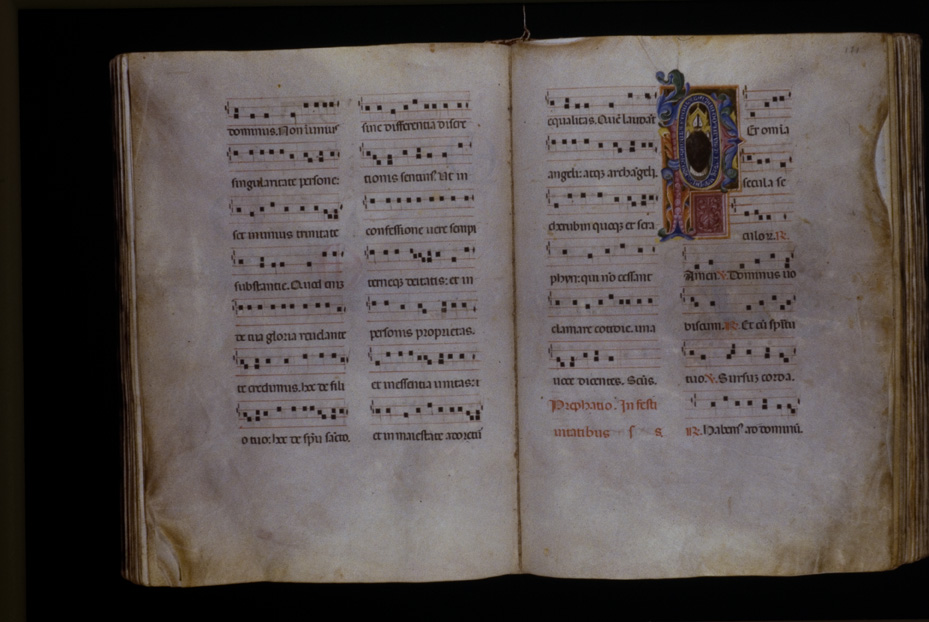 dominus. Non in unius
singularitate persone:
set in unius trinitate
substantie. Quod enz
de tua gloria reuelante
te credimus. hoc de fili
o tuo: hoc de spu sacto.
sine differentia discre
tionis sentim9. Ut in
confessione uere sempi
terneqz deitatis: et in
personis proprietas.
et in essentia unitas: &
et in maiestate adoretur
equalitas. Quē laudāt
angeli: atqz archāgeli.
cherubin quoqz et sera
phyn: qui nō cessant
clamare cotidie. una
uoce dicentes. Scūs.
Prephatio. In festi
uitatibus
Er omīa
secula se
culoz. R.
Amen. V. Dominus uo
biscum. R. Et cū spiritu
tuo. V. Sursuz corda.
R. Habem9 ad dominū.